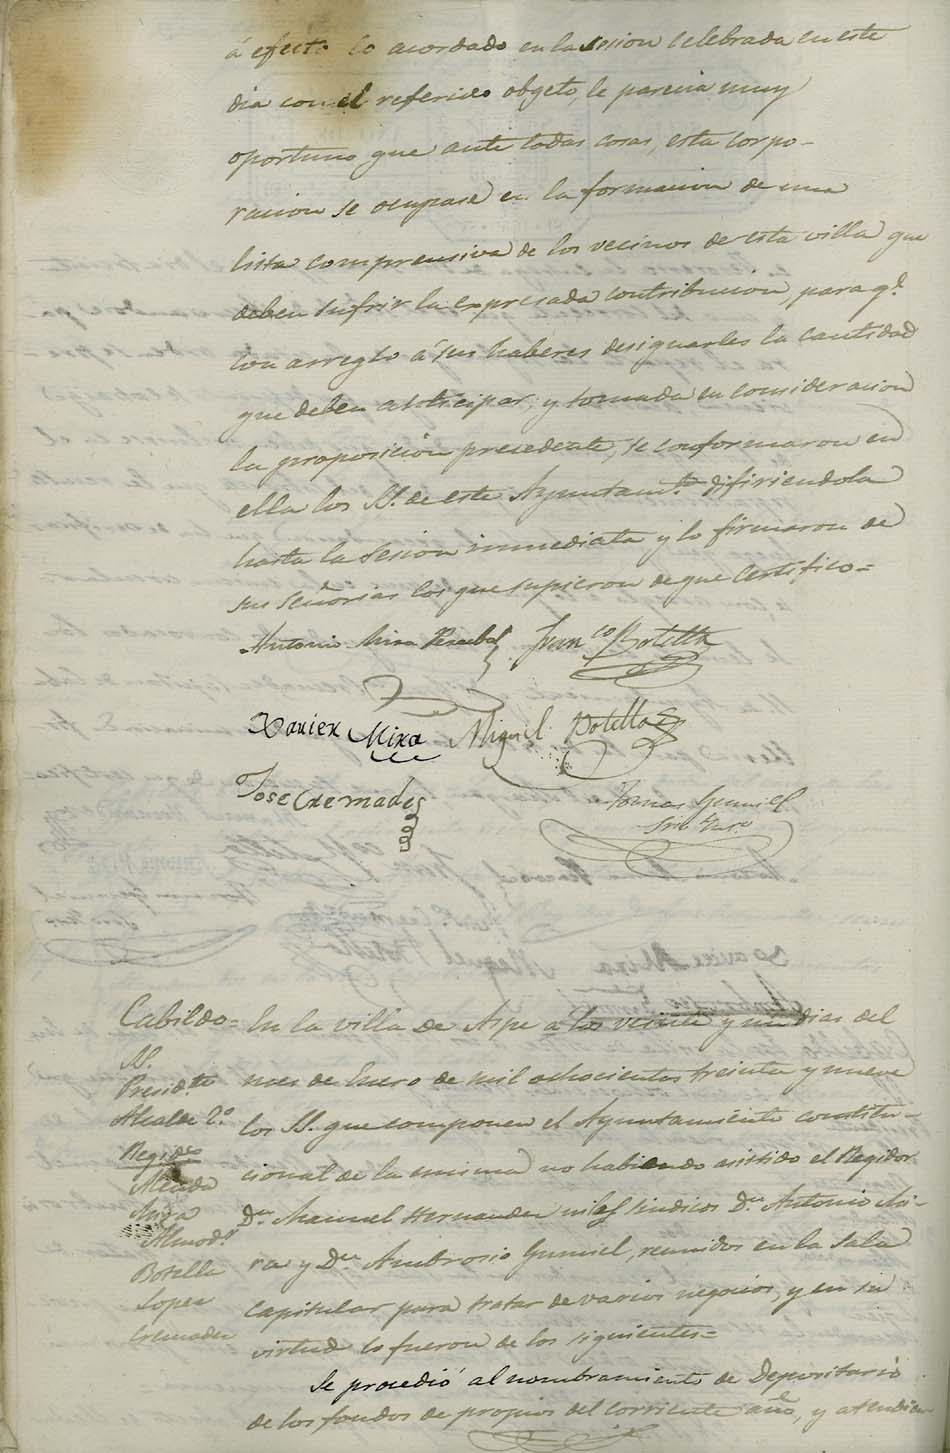 á efecto lo acordado en la sesion celebrada en este
dia con el referido obgeto, le parecia muy
oportuno que ante todas cosas, esta corpo-
racion se ocupase en la formacion de una
lista comprensiva de los vecinos de esta villa que
deben sufrir la expresada contribucion, para q.e
con arreglo á sus haberes designarles la cantidad
que deben anticipar; y tomada en consideracion
la proposicion precedente, se conformaron en
ella los SS. de este Ayuntam.to difiriendola
hasta la sesion immediata y lo firmaron de
sus Señorias los que supieron de que certifico=
Antonio Mira Fran.co Botella
Xavier Mira Miguel Botella
Jose Cremades
Tomas Gumiel
Srio
Cabildo=
SS.
Presid.te
Alcalde 2.o
Regid.s
Mira
Almod.r
Botella
Lopez
Cremades
En la villa de Aspe a los veinte y un dias del
mes de Enero de mil ochocientos treinta y nueve
los SS. que componen el Ayuntamiento constitu-
cional de la misma no habiendo asistido el Regidor
D.n Manuel Hernandez ni los Sindicos D.n Antonio Mi-
ra y D.n Ambrosio Gumiel, reunidos en la Sala
capitular para tratar de varios negocios, y en su
virtud lo fueron de los siguientes=
Se procedió al nombramiento de Depositario
de los fondos de propios del corriente año, y atendien-